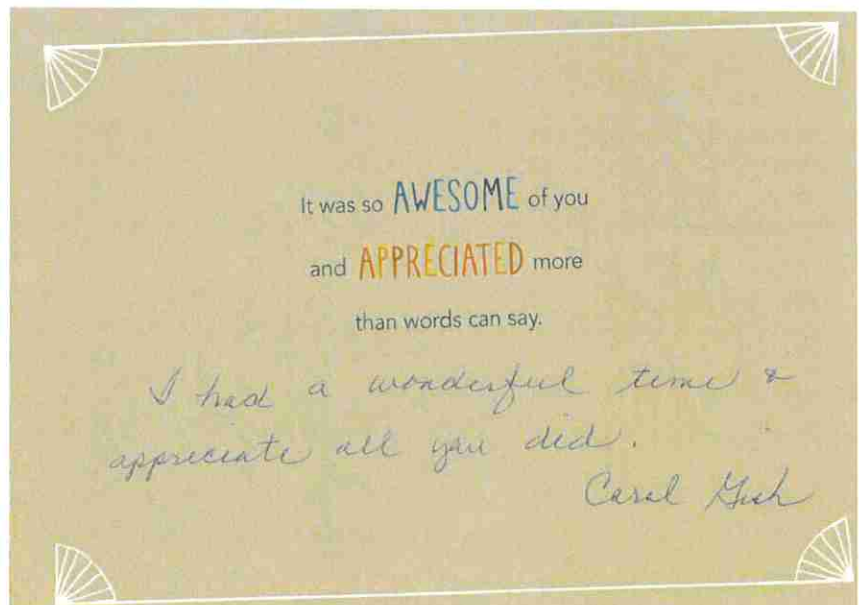 It was so AWESOME of you
and APPRECIATED more
than words can say.
I had a wonderful time &
appreciate all you did.
Carol Gish